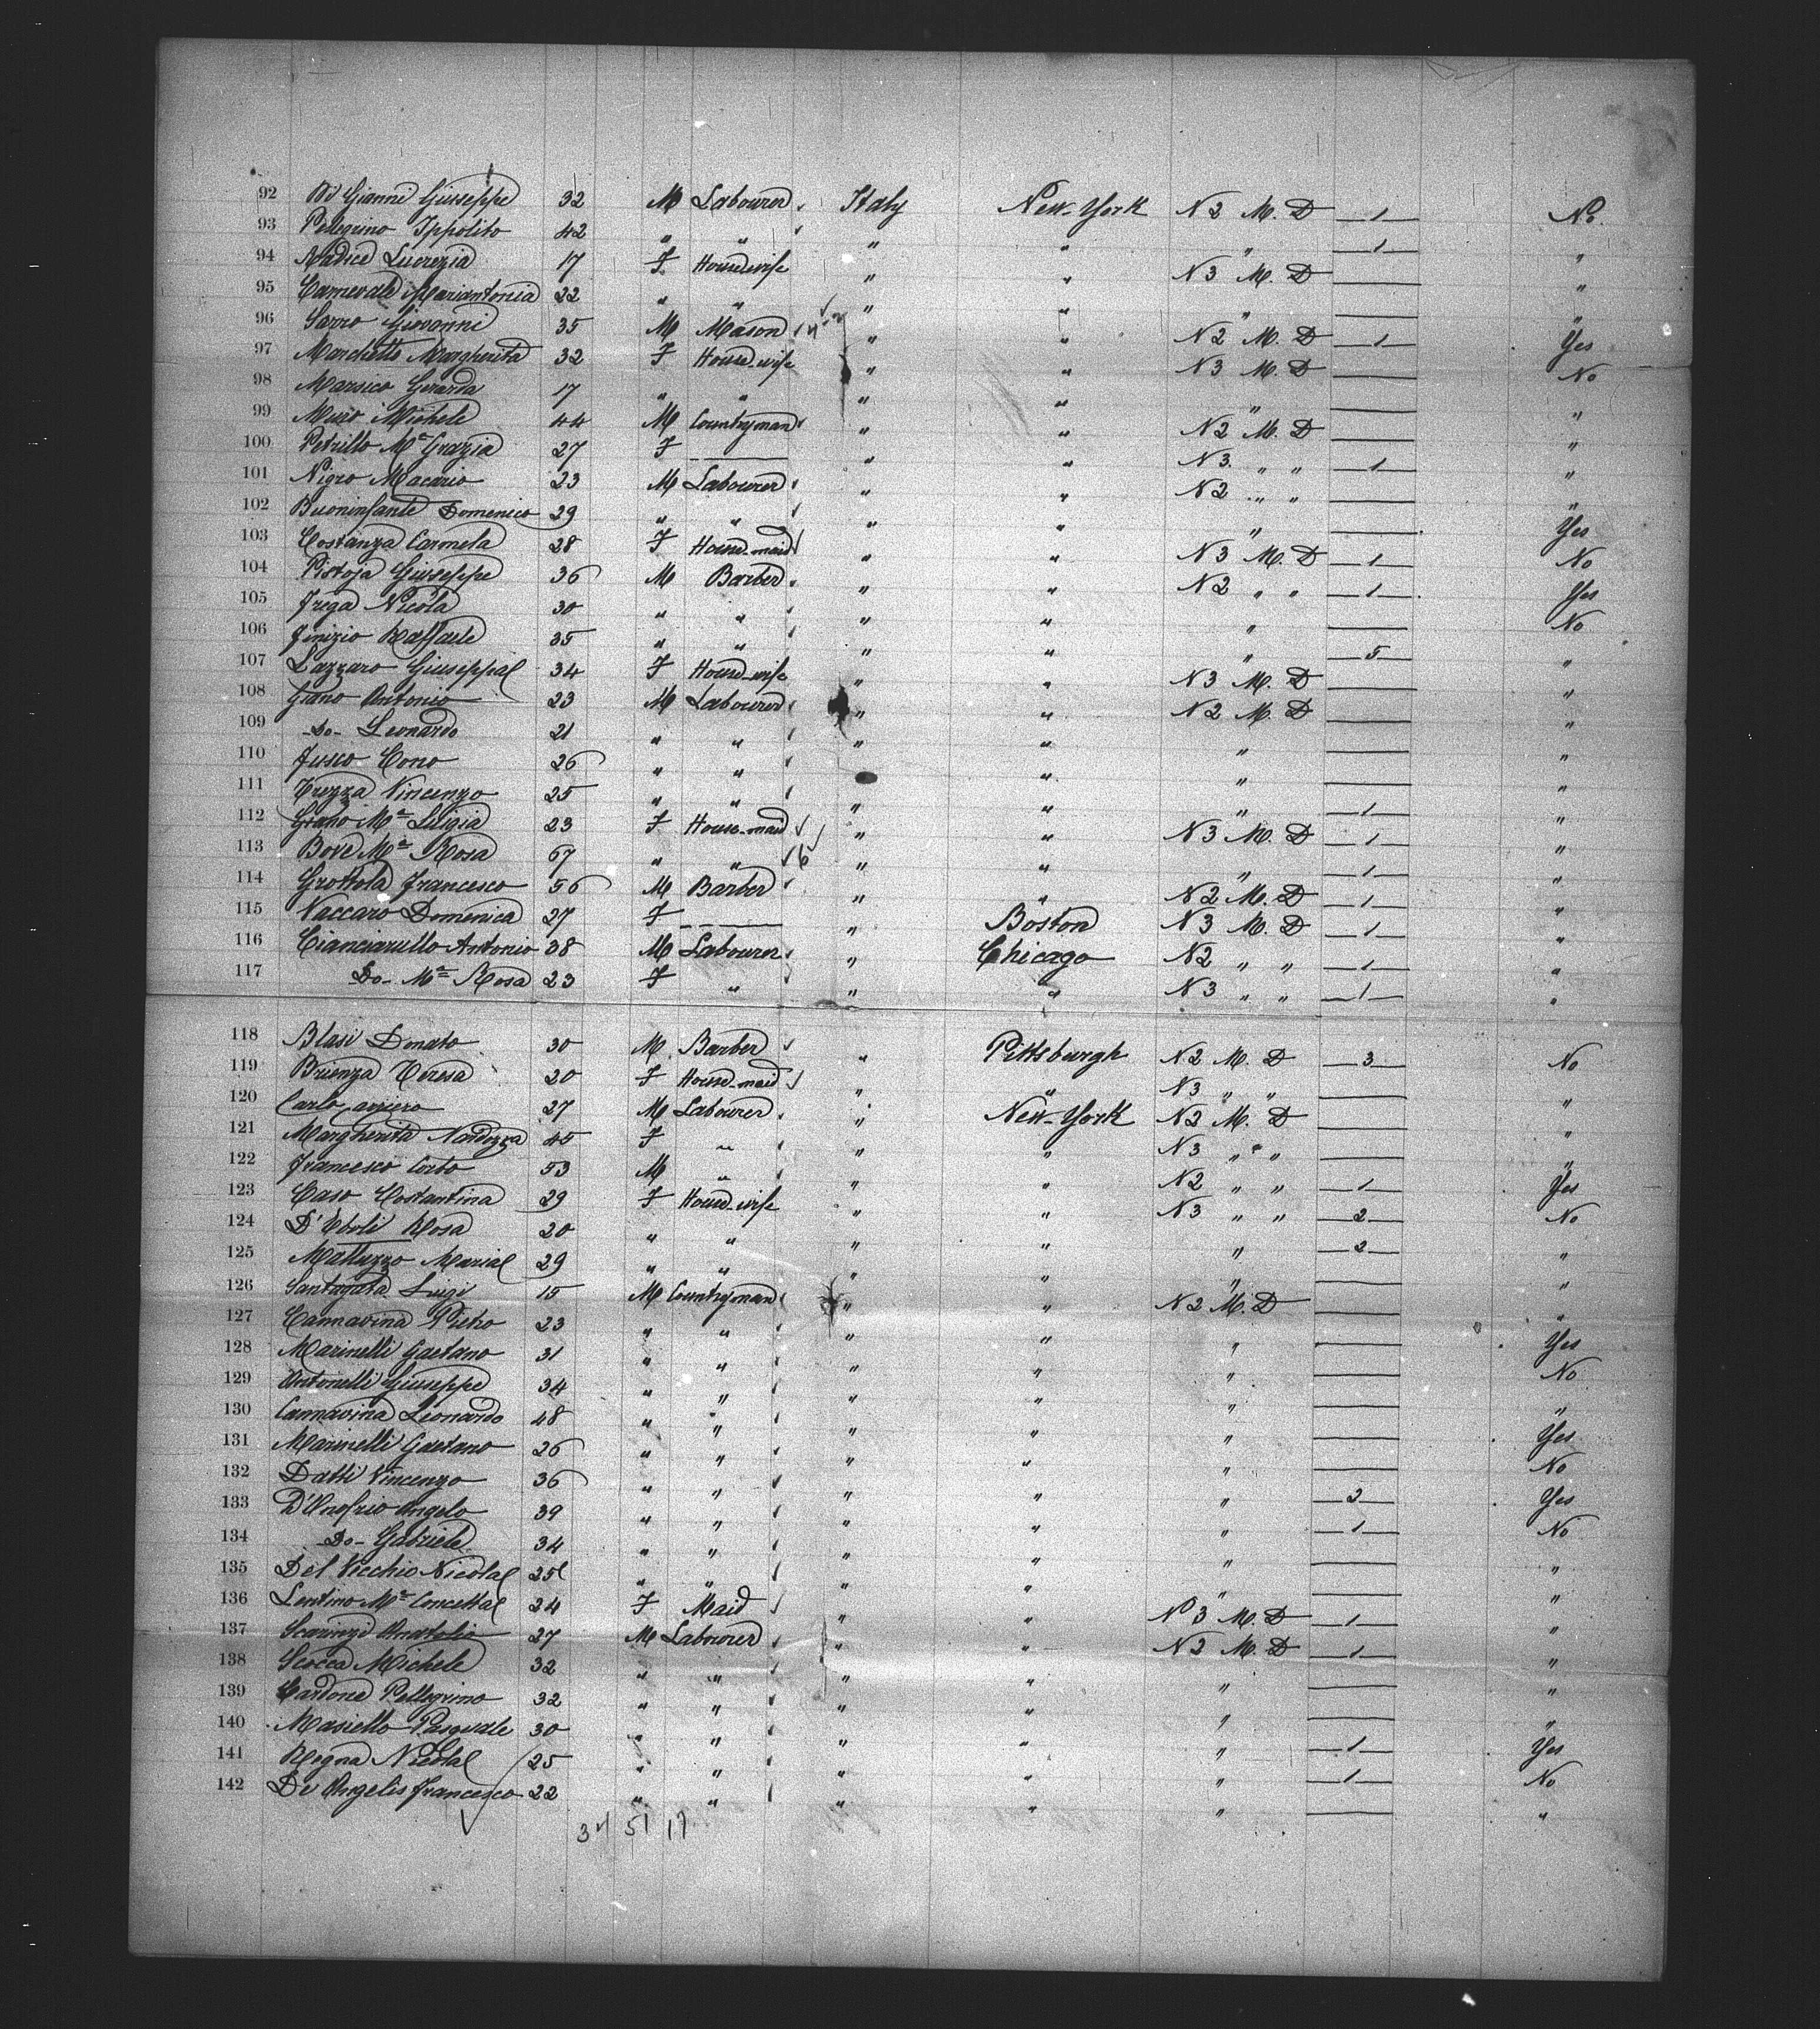 92 Di Gianni Giuseppe 32 M Labourer Italy New-York N 2 M. D 1 No.
93 Pellegrino Ippolito 42 " " " " " 1 "
94 Radice Lucrezia 17 F House wife " " N 3 M. D — "
95 Carnevale Mariantonia 22 " " " " " — "
96 Sarro Giovanni 35 M Mason " " N 2 M. D 1 Yes
97 Marchetto Margherita 32 F House-wife " " N 3 M. D — No
98 Marsico Gerarda 17 " " " " " — "
99 Michele 44 M Countryman " " N 2 M. D — "
100 Petrillo Mª Grazia 27 F — " " N 3. " " 1 "
101 Nigro Macario 23 M Labourer " " N 2 " " — "
102 Buoninfante Domenico 29 " " " " " — Yes
103 Costanza Carmela 28 F House-maid " " N 3 M. D 1 No
104 Pistoja Giuseppe 36 M Barber " " N 2 " " 1 Yes
105 Frega Nicola 30 " " " " " — No
106 Finizio Raffaele 35 " " " " " 5 "
107 Lazzaro Giuseppa 34 F House-wife " " N 3 M. D — "
108 Grano Antonio 23 M Labourer " " N 2 M. D — "
109 -Do- Leonardo 21 " " " " " — "
110 Fusco Cono 26 " " " " — "
111 Trezza Vincenzo 25 " " " " " 1 "
112 Grano Mª Luigia 23 F House-maid " " N 3 M. D 1 "
113 Bove Mª Rosa 67 " " 6 " " " 1 "
114 Grottola Francesco 56 M Barber " " N 2 M. D 1 "
115 Vaccaro Domenica 27 F — " Boston N 3 M. D 1 "
116 Cianciarullo Antonio 38 M Labourer " Chicago N 2 " " 1 "
117 Do- Mª Rosa 23 F " " " N 3 " " 1 "
118 Blasi Donato 30 M. Barber " Pittsburgh N 2 M. D 3 No
119 Brienza Teresa 20 F House-maid " " N 3 " " — "
120 Carlo 27 M Labourer " New-York N 2 M. D — "
121 Margherita Nardozza 45 F " " " N 3 " " — "
122 Francesco Corbo 53 M " " " N 2 " " 1 Yes
123 Caso Costantina 29 F House-wife " " N 3 " " 2 No
124 D'Eboli Rosa 20 " " " " " 2 "
125 Matturro Maria 29 " " " " " — "
126 Santagata Luigi 15 M Countryman " " N 2 M. D — "
127 Cannavina Pietro 23 " " " " " — Yes
128 Marinelli Gaetano 31 " " " " " — No
129 Antonelli Giuseppe 34 " " " " " — "
130 Cannavina Leonardo 48 " " " " " — Yes
131 Marinelli Gaetano 26 " " " " " — No
132 Datti Vincenzo 36 " " " " " 2 Yes
133 D'Onofrio Angelo 39 " " " " " 1 No
134 Do- Gabriele 34 " " " " " — "
135 Del Vecchio Nicola 25 " " " " " — "
136 Lentino Mª Concetta 24 F Maid " " N 3 M. D 1 "
137 Scarinzi Anatolio 27 M Labourer " " N 2 M. D 1 "
138 Scocca Michele 32 " " " " " — "
139 Cardone Pellegrino 32 " " " " " — "
140 Masiello Pasquale 30 " " " " " 1 Yes
141 Regna Nicola 25 " " " " " 1 No
142 De Angelis Francesco 22 " " " " " — "
34 51 17